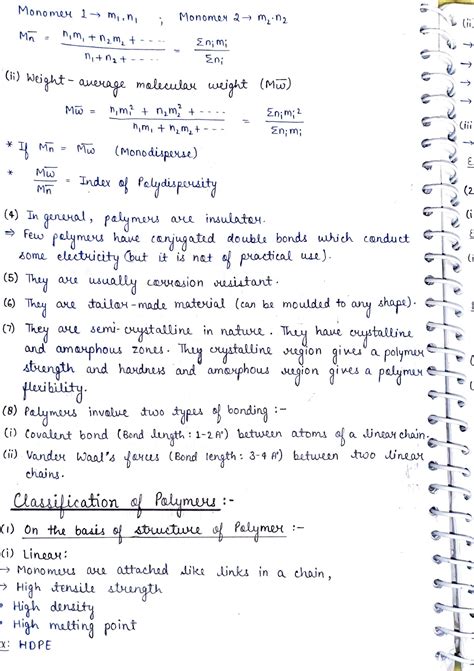 Monomer 1 → m₁,n₁ ; Monomer 2 → m₂.n₂
M̅n̅ = n₁m₁ + n₂m₂ + ---- / n₁+n₂+---- = Σnᵢmᵢ / Σnᵢ
(ii) Weight-average molecular weight (M̅w̅)
M̅w̅ = n₁m₁² + n₂m₂² + ---- / n₁m₁ + n₂m₂+---- = Σnᵢmᵢ² / Σnᵢmᵢ
* If M̅n̅ = M̅w̅ (Monodisperse)
* M̅w̅ / M̅n̅ = Index of Polydispersity
(4) In general, polymers are insulator.
⇒ Few polymers have conjugated double bonds which conduct
some electricity (but it is not of practical use).
(5) They are usually corrosion resistant.
(6) They are tailor-made material (can be moulded to any shape).
(7) They are semi-crystalline in nature. They have crystalline
and amorphous zones. They crystalline region gives a polymer
strength and hardness and amorphous region gives a polymer
flexibility.
(8) Polymers involve two types of bonding :-
(i) Covalent bond (Bond length : 1-2 A°) between atoms of a linear chain.
(ii) Vander Waal's forces (Bond length : 3-4 A°) between two linear
chains.
Classification of Polymers :-
(1) On the basis of structure of Polymer :-
(i) Linear:
→ Monomers are attached like links in a chain,
→ High tensile strength
• High density
• High melting point
x: HDPE
(ii)
(iii
(2
(i